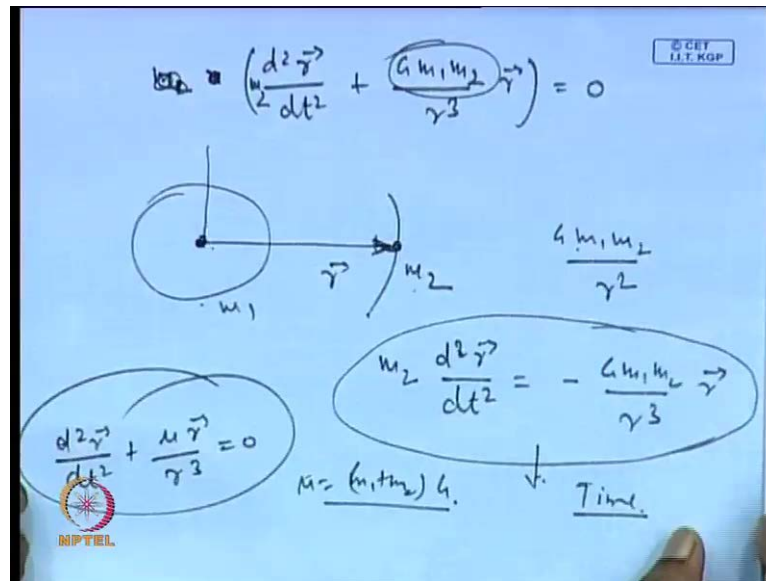 © CET
I.I.T. KGP
(m₂ d²r⃗/dt² + G m₁ m₂/r³ r⃗) = 0
r⃗
m₁
m₂
G m₁ m₂/r²
m₂ d²r⃗/dt² = - G m₁ m₂/r³ r⃗
d²r⃗/dt² + μ r⃗/r³ = 0
μ = (m₁+m₂) G.
Time.
NPTEL